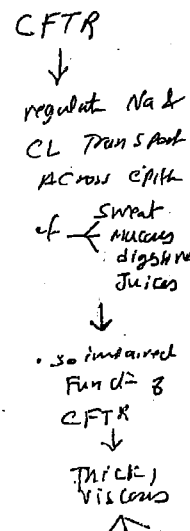 CFTR
regulat Na &
CL Transport
Across epith
of sweat
mucous
digstive
Juices
. so impaired
Func of
CFTR
Thick,
Viscous